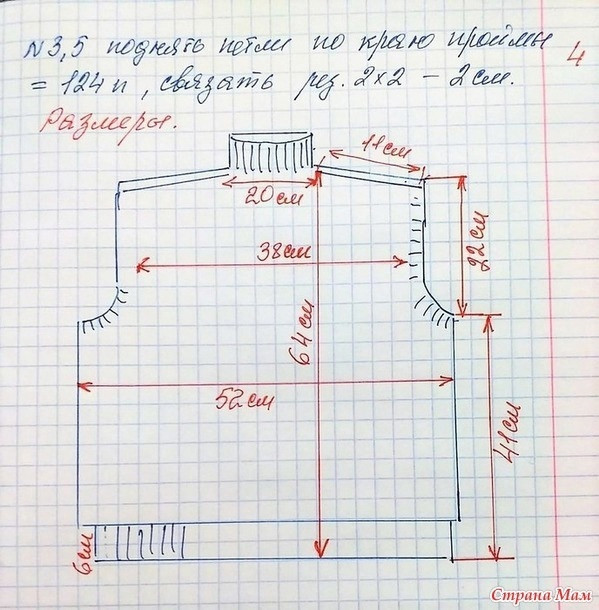 N3,5 поднять петли по краю проймы
= 124 п, связать рез. 2х2 - 2см.
4
Размеры.
11см
20см
22см
38см
64см
52см
41см
6см
Страна Мам